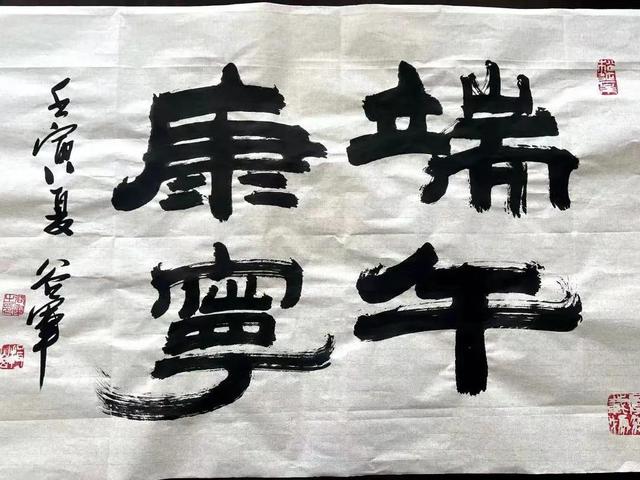 端午
康寧
壬寅夏
谷軍